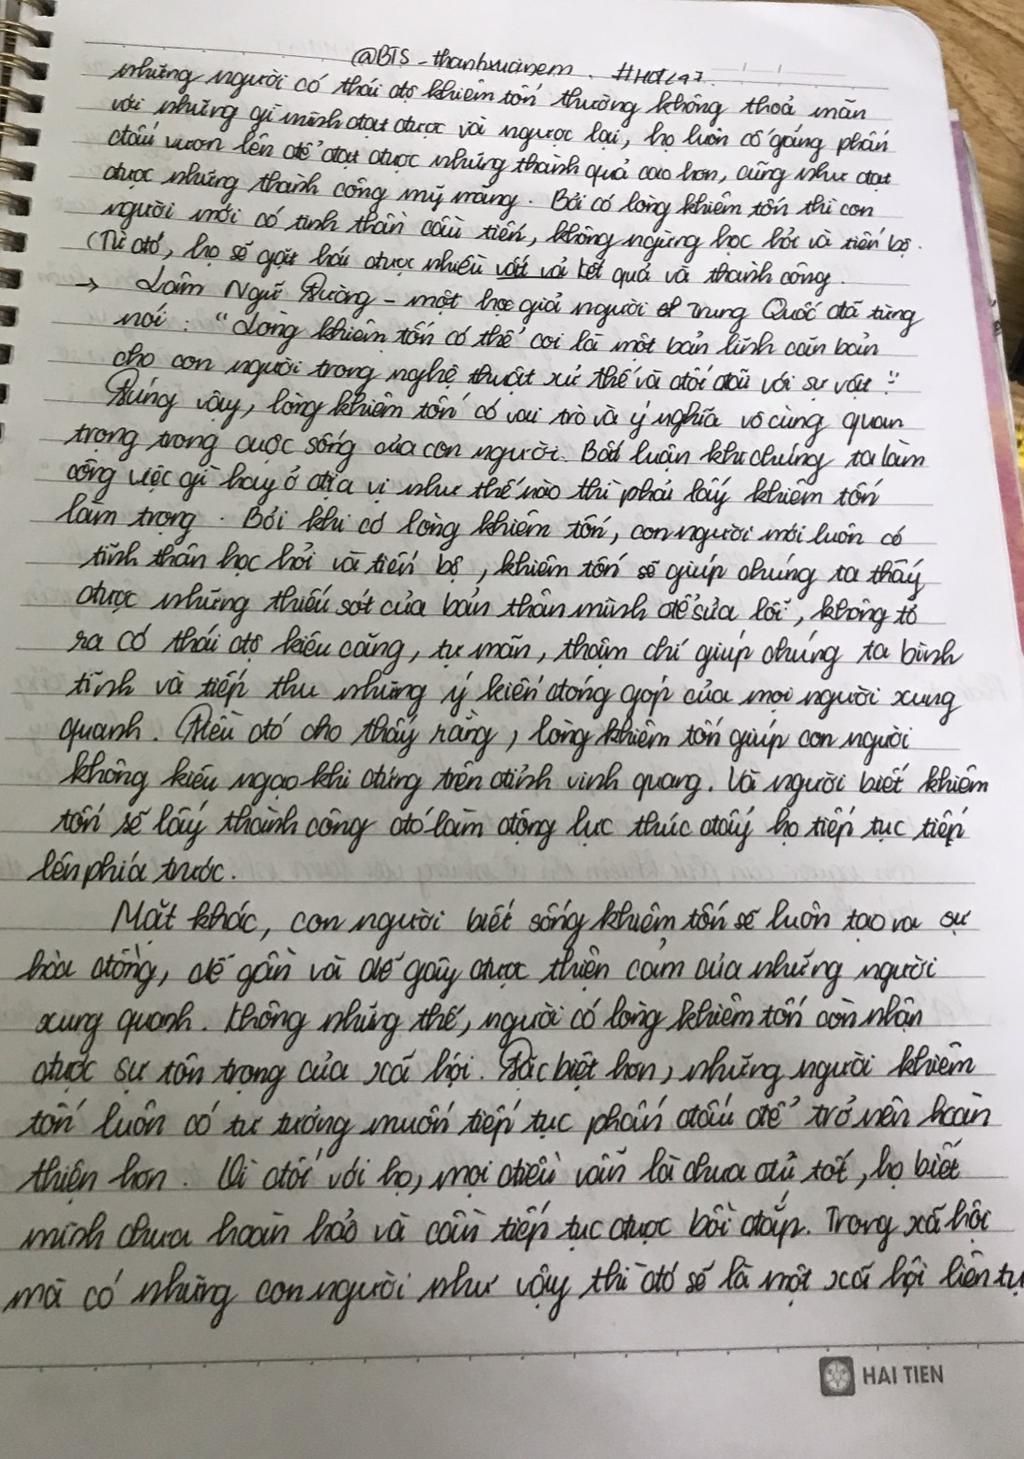 @BTS_thanhxuanem. #HOI247
những người có thái độ khiêm tốn thường không thoả mãn
với những gì mình đạt được và ngược lại, họ luôn cố gắng phấn
đấu vươn lên để đạt được những thành quả cao hơn, cũng như đạt
được những thành công mỹ mãng. Bởi có lòng khiêm tốn thì con
người mới có tinh thần cầu tiến, không ngừng học hỏi và tiến bộ.
(Từ đó, họ sẽ gặt hái được nhiều kết quả và thành công.
→ Lâm Ngữ Đường - một học giả người Trung Quốc đã từng
nói: "Lòng khiêm tốn có thể coi là một bản lĩnh căn bản
cho con người trong nghệ thuật xử thế và đối đãi với sự vật".
Đúng vậy, lòng khiêm tốn có vai trò và ý nghĩa vô cùng quan
trọng trong cuộc sống của con người. Bất luận khi chúng ta làm
công việc gì hay ở địa vị như thế nào thì phải lấy khiêm tốn
làm trọng. Bởi khi có lòng khiêm tốn, con người mới luôn có
tinh thần học hỏi và tiến bộ, khiêm tốn sẽ giúp chúng ta thấy
được những thiếu sót của bản thân mình để sửa lỗi, không tỏ
ra có thái độ kiêu căng, tự mãn, thậm chí giúp chúng ta bình
tĩnh và tiếp thu những ý kiến đóng góp của mọi người xung
quanh. Điều đó cho thấy rằng, lòng khiêm tốn giúp con người
không kiêu ngạo khi đứng trên đỉnh vinh quang. Và người biết khiêm
tốn sẽ lấy thành công đó làm động lực thúc đẩy họ tiếp tục tiến
lên phía trước.
Mặt khác, con người biết sống khiêm tốn sẽ luôn tạo ra sự
hòa đồng, dễ gần và dễ gây được thiện cảm của những người
xung quanh. Không những thế, người có lòng khiêm tốn còn nhận
được sự tôn trọng của xã hội. Đặc biệt hơn, những người khiêm
tốn luôn có tư tưởng muốn tiếp tục phấn đấu để trở nên hoàn
thiện hơn. Vì đối với họ, mọi điều vẫn là chưa đủ tốt, họ biết
mình chưa hoàn hảo và cần tiếp tục được bồi đắp. Trong xã hội
mà có những con người như vậy thì đó sẽ là một xã hội liên tụ
HAI TIEN